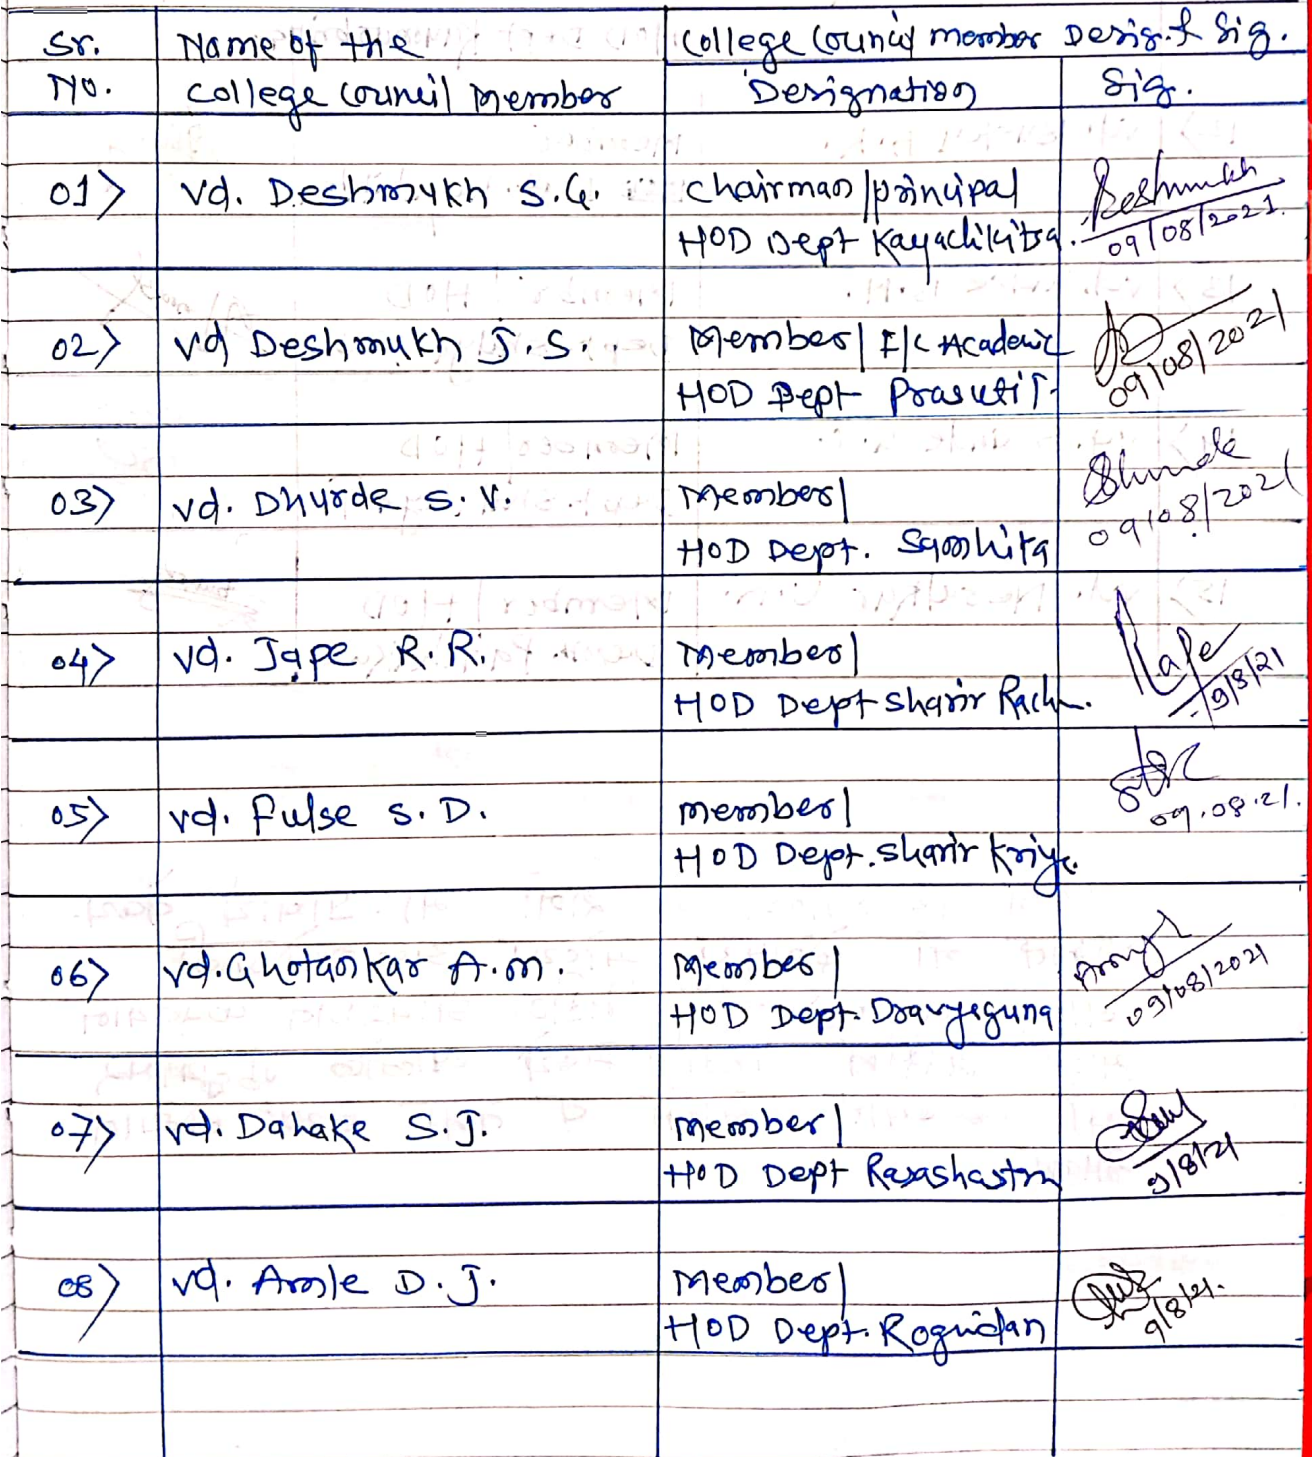 Sr. Name of the College Council member Desig. & Sig.
No. College Council Member Designation Sig.
01) Vd. Deshmukh S.G. Chairman/principal Deshmukh
HOD Dept Kayachikitsa. 09/08/2021.
02) Vd Deshmukh J.S. Member/ I/C Academic
HOD Dept Prasuti T. 09/08/2021
03) Vd. Dhurde S.V. Member/
HOD Dept. Samhita 09/08/2021
04) Vd. Jape R.R. Member/ Rape
HOD Dept Sharir Rach. 9/8/21
05) Vd. Fulse S.D. member/ 09.08.21.
HOD Dept. Sharir Kriya.
06) Vd. Ghotankar A.M. Member/
HOD Dept. Dravyaguna 09/08/2021
07) Vd. Dahake S.J. Member/
HOD Dept Rasashastra 9/8/21
08) Vd. Amle D.J. Member/
HOD Dept. Rognidan 9/8/21.